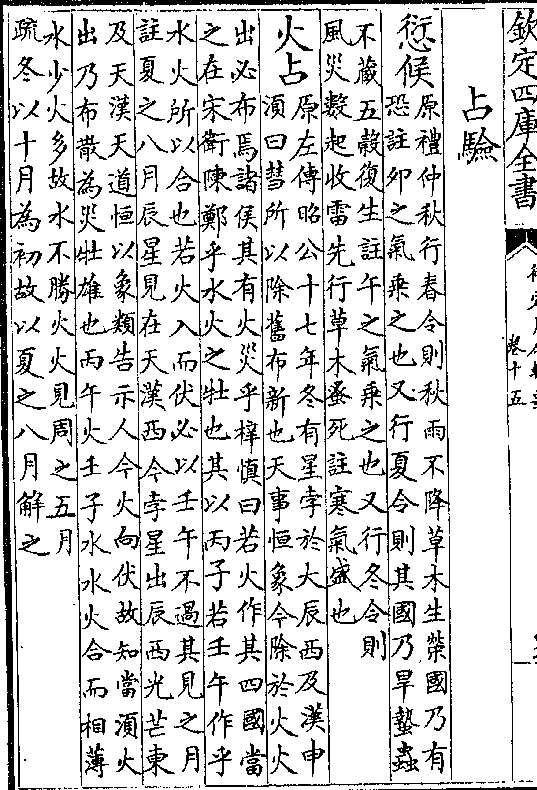 欽定四庫全書
卷十五
占驗
愆候原禮仲秋行春令則秋雨不降草木生榮國乃有
恐註卯之氣乘之也又行夏令則其國乃旱蟄蟲
不藏五穀復生註午之氣乘之也又行冬令則
風災數起收雷先行草木蚤死註寒氣盛也
火占原左傳昭公十七年冬有星孛於大辰西及漢申
湏曰彗所以除舊布新也天事恒象今除於火火
出必布焉諸侯其有火災乎梓慎曰若火作其四國當
之在宋衛陳鄭乎水火之牡也其以丙子若壬午作乎
水火所以合也若火入而伏必以壬午不過其見之月
註夏之八月辰星見在天漢西今孛星出辰西光芒東
及天漢天道恒以象類告示人今火向伏故知當湏火
出乃布散為災牡雄也丙午火壬子水水火合而相薄
水少火多故水不勝火火見周之五月
疏冬以十月為初故以夏之八月解之